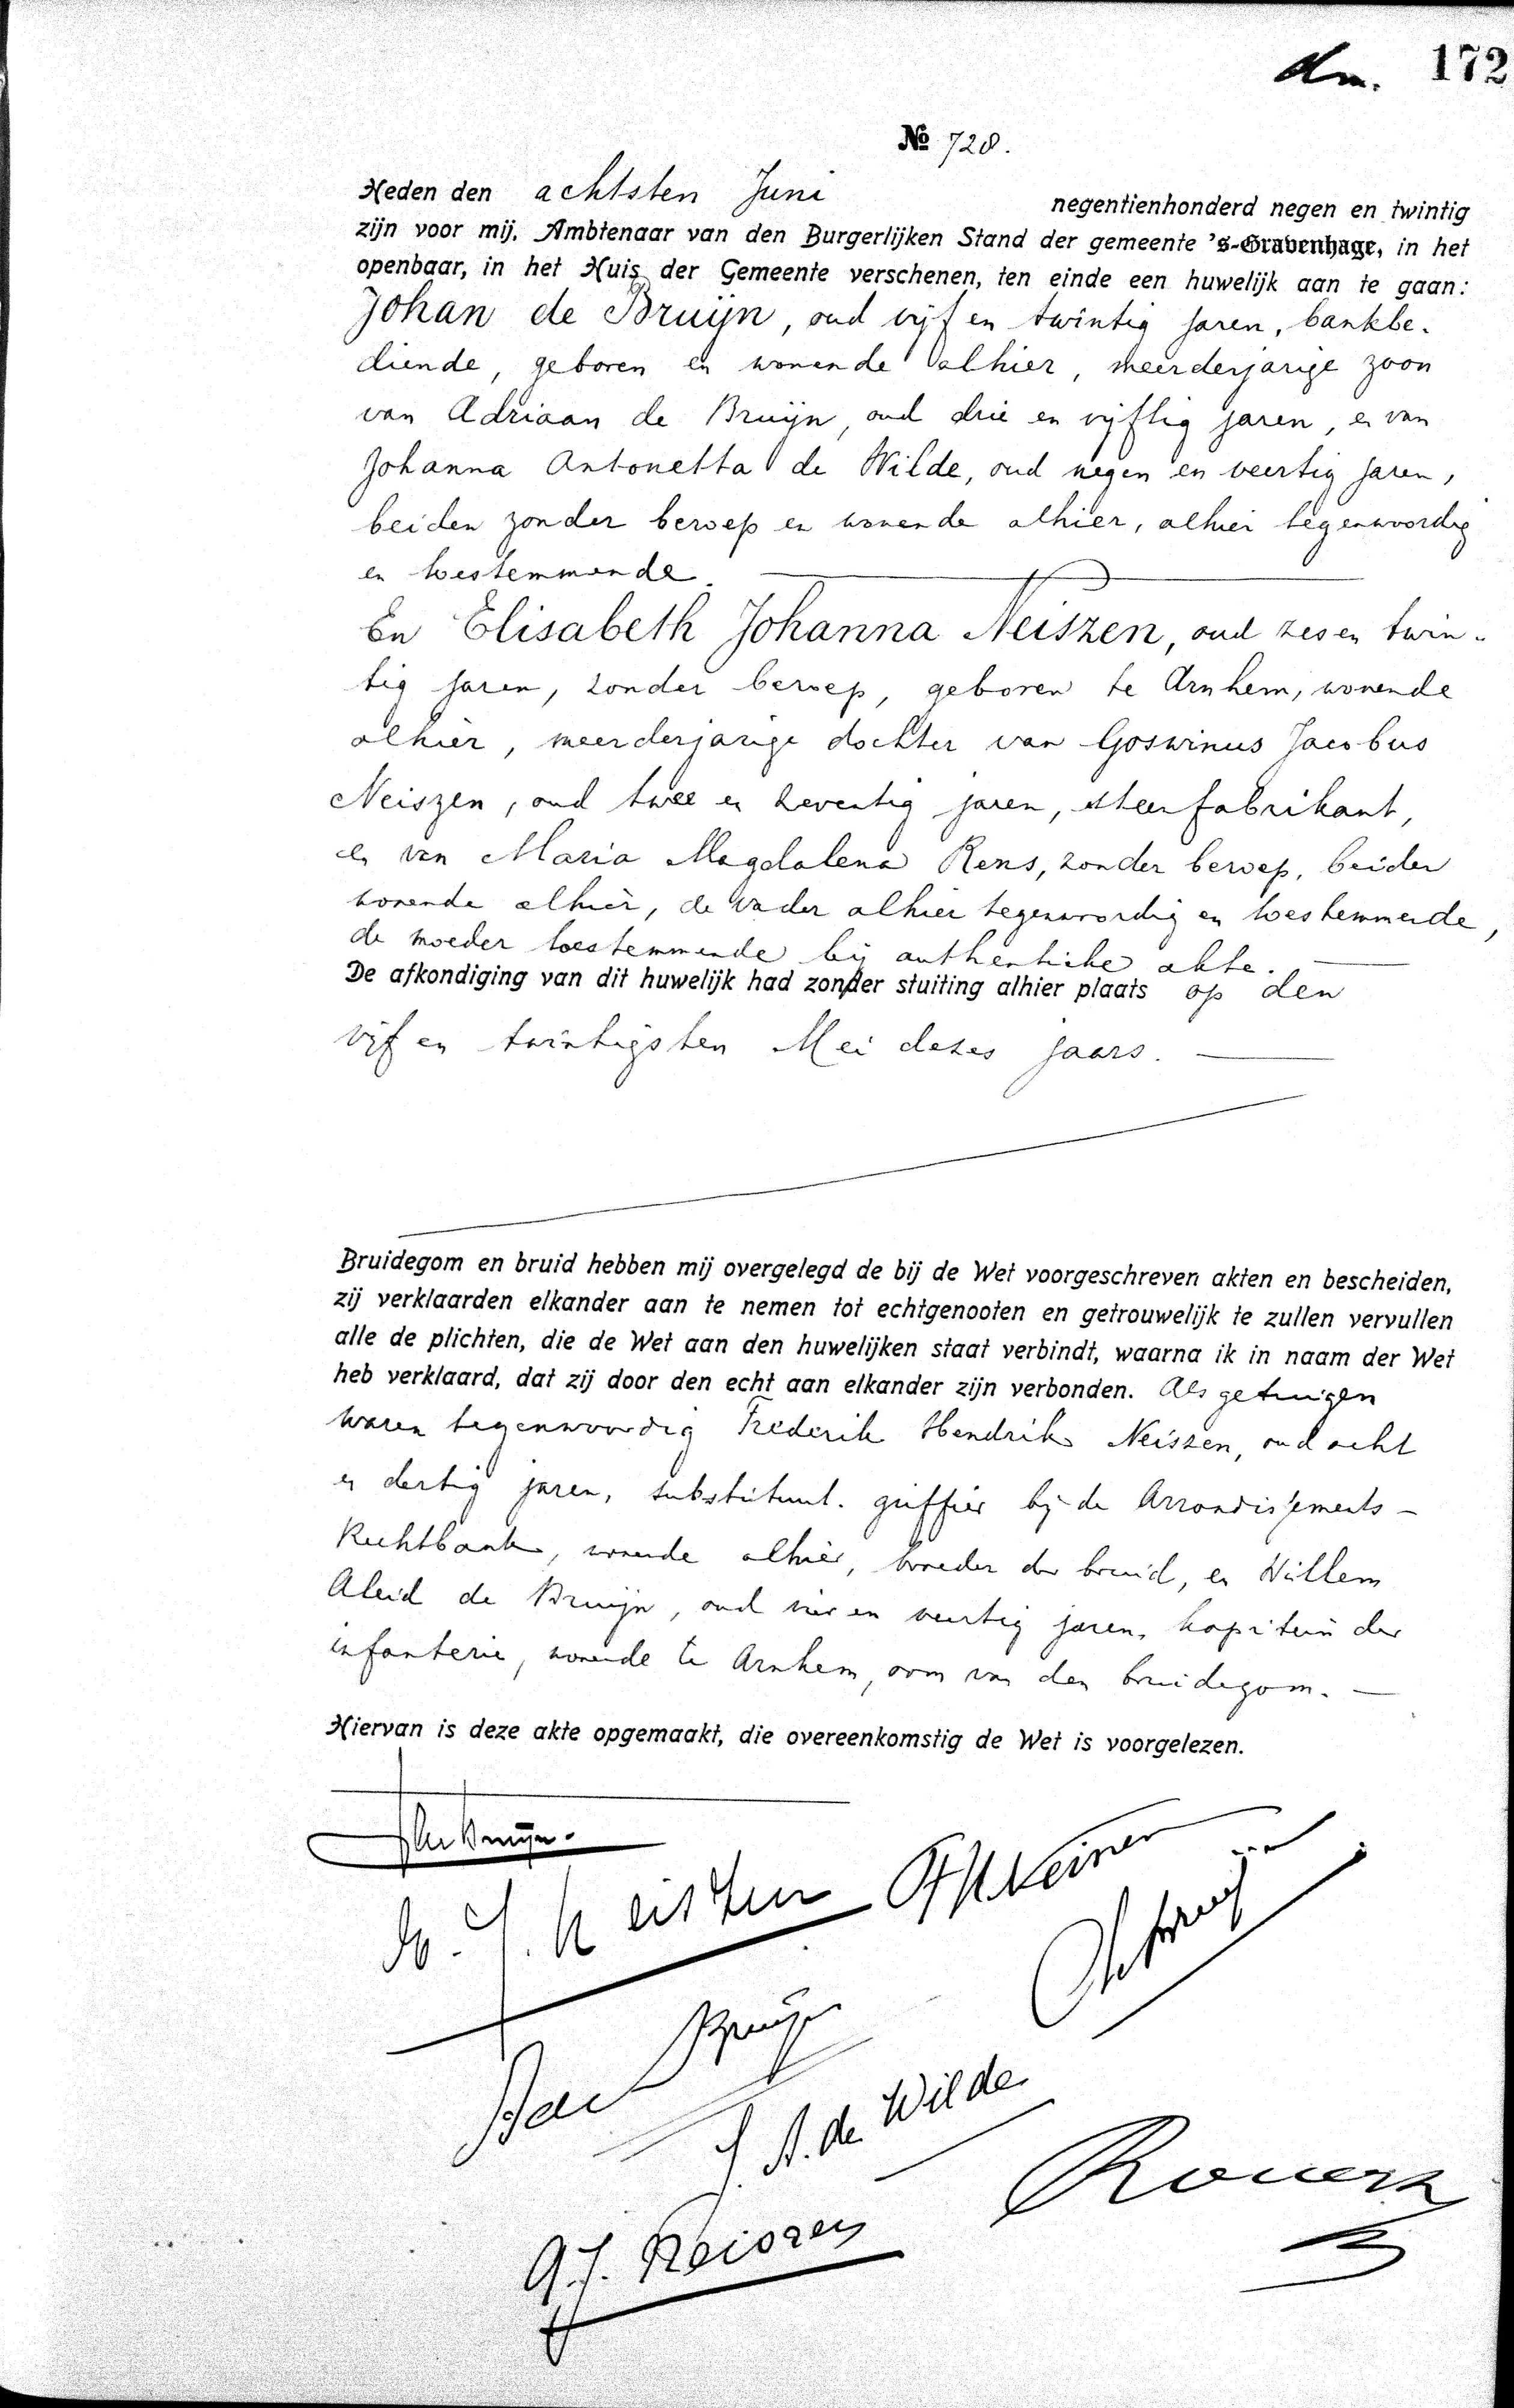 dm. 172
№ 728.
Heden den achtsten Juni negentienhonderd negen en twintig
zijn voor mij, Ambtenaar van den Burgerlijken Stand der gemeente 's-Gravenhage, in het
openbaar, in het Huis der Gemeente verschenen, ten einde een huwelijk aan te gaan:
Johan de Bruijn, oud vijf en twintig jaren, bankbe-
diende, geboren en wonende alhier, meerderjarige zoon
van Adriaan de Bruijn, oud drie en vijftig jaren, en van
Johanna Antonetta de Wilde, oud negen en veertig jaren,
beiden zonder beroep en wonende alhier, alhier tegenwoordig
en toestemmende.
En Elisabeth Johanna Neiszen, oud zes en twin-
tig jaren, zonder beroep, geboren te Arnhem, wonende
alhier, meerderjarige dochter van Goswinus Jacobus
Neiszen, oud twee en zeventig jaren, steenfabrikant,
en van Maria Magdalena Rens, zonder beroep, beiden
wonende alhier, de vader alhier tegenwoordig en toestemmende,
de moeder toestemmende bij authentieke akte.
De afkondiging van dit huwelijk had zonder stuiting alhier plaats op den
vijf en twintigsten Mei dezes jaars.
Bruidegom en bruid hebben mij overgelegd de bij de Wet voorgeschreven akten en bescheiden,
zij verklaarden elkander aan te nemen tot echtgenooten en getrouwelijk te zullen vervullen
alle de plichten, die de Wet aan den huwelijken staat verbindt, waarna ik in naam der Wet
heb verklaard, dat zij door den echt aan elkander zijn verbonden. Als getuigen
waren tegenwoordig Frederik Hendrik Neiszen, oud acht
en dertig jaren, substituut-griffier bij de Arrondissements-
Rechtbank, wonende alhier, broeder der bruid, en Willem
Aleid de Bruijn, oud vier en veertig jaren, kapitein der
infanterie, wonende te Arnhem, oom van den bruidegom.
Hiervan is deze akte opgemaakt, die overeenkomstig de Wet is voorgelezen.
J de Bruijn.
E. J. Neiszen FHNeiszen
de Bruijn
A de Bruijn
J. A. de Wilde
G. J. Neiszen